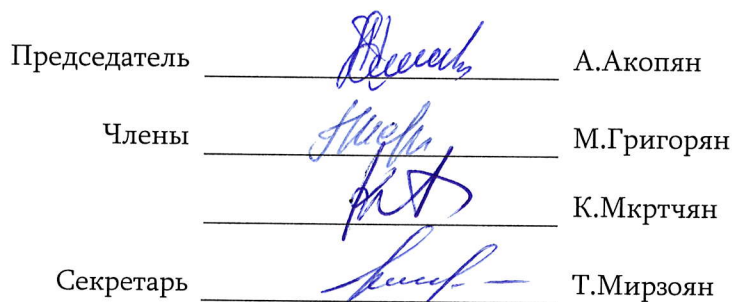 Председатель А.Акопян
Члены М.Григорян
К.Мкртчян
Секретарь Т.Мирзоян